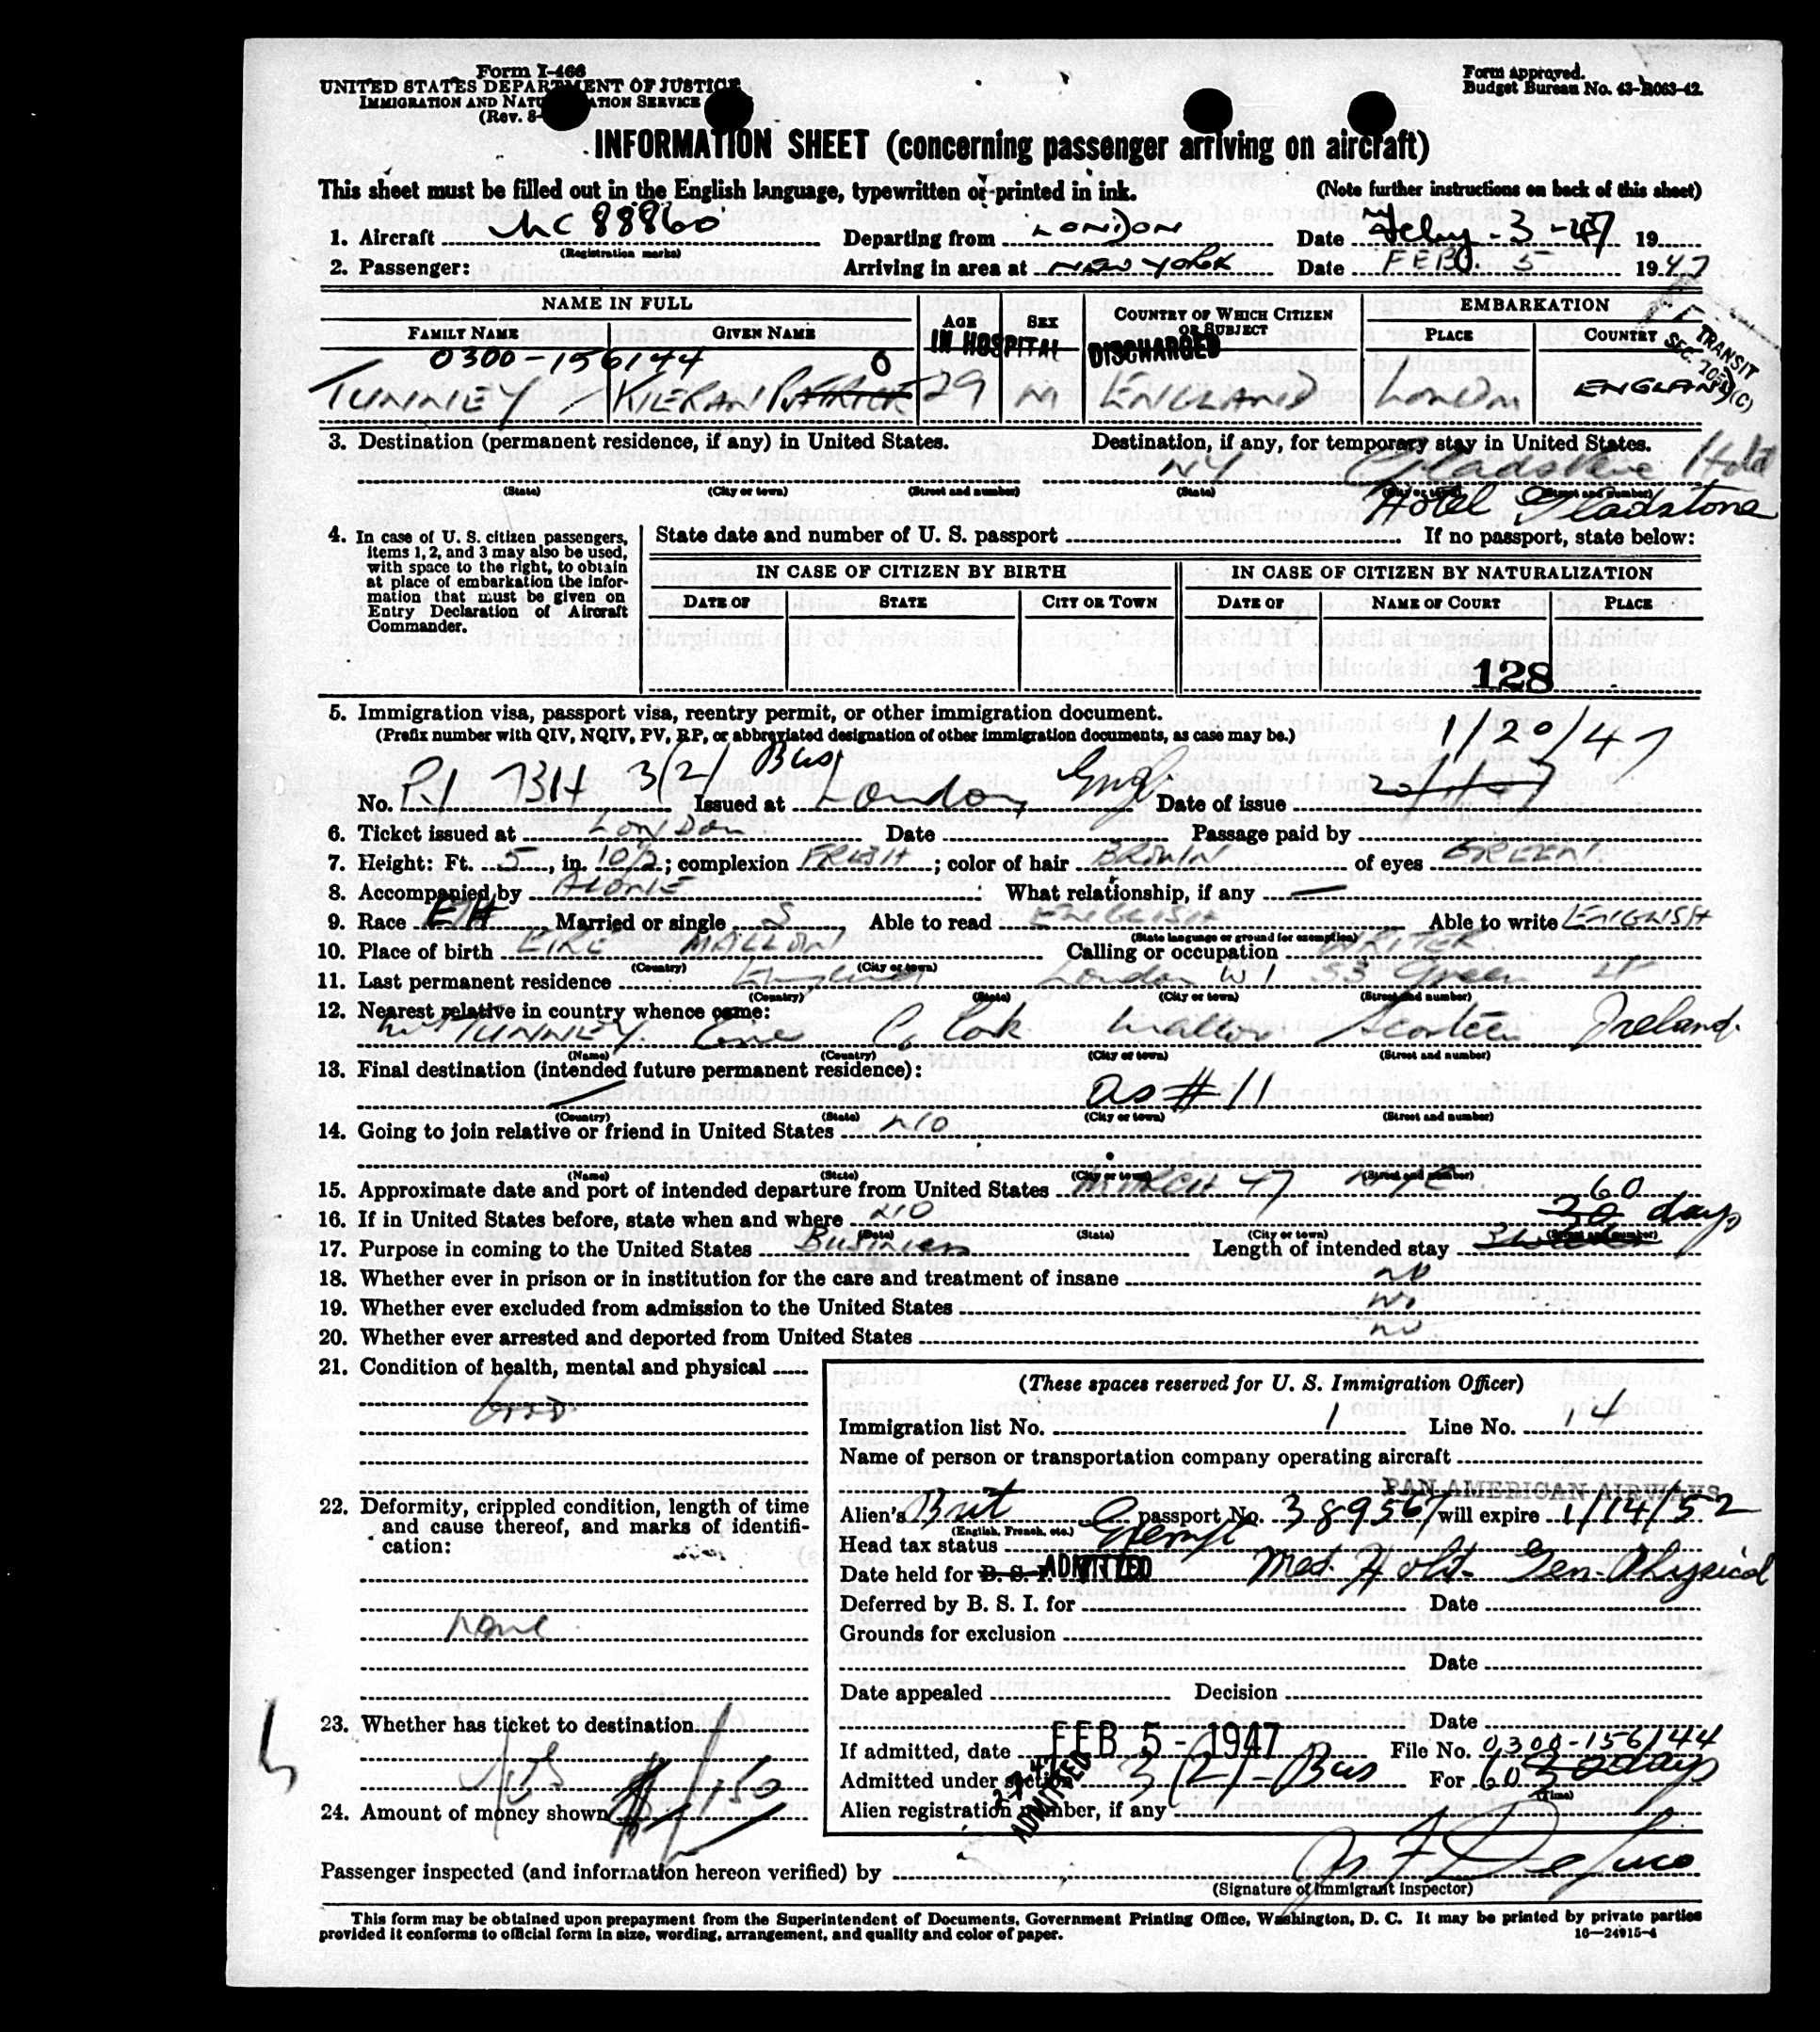 Form I-466
UNITED STATES DEPARTMENT OF JUSTICE
IMMIGRATION AND NATURALIZATION SERVICE
(Rev. 8-
Form approved.
Budget Bureau No. 43-R063-42.
INFORMATION SHEET (concerning passenger arriving on aircraft)
This sheet must be filled out in the English language, typewritten or printed in ink. (Note further instructions on back of this sheet)
1. Aircraft NC 88860 Departing from LONDON Date Feby-3-47 19
(Registration marks)
2. Passenger: Arriving in area at NEW YORK Date FEB. 5 1947
NAME IN FULL AGE SEX COUNTRY OF WHICH CITIZEN OR SUBJECT EMBARKATION
FAMILY NAME GIVEN NAME PLACE COUNTRY
IN HOSPITAL DISCHARGED
TRANSIT
0300-156144 0
TUNNEY KIERAN PATRICK 29 M ENGLAND London ENGLAND
3. Destination (permanent residence, if any) in United States. Destination, if any, for temporary stay in United States.
NY Gladstone Hotel
(State) (City or town) (Street and number) (State) (City or town) (Street and number)
Hotel Gladstone
4. In case of U. S. citizen passengers, items 1, 2, and 3 may also be used, with space to the right, to obtain at place of embarkation the information that must be given on Entry Declaration of Aircraft Commander.
State date and number of U. S. passport If no passport, state below:
IN CASE OF CITIZEN BY BIRTH IN CASE OF CITIZEN BY NATURALIZATION
DATE OF STATE CITY OR TOWN DATE OF NAME OF COURT PLACE
128
5. Immigration visa, passport visa, reentry permit, or other immigration document.
(Prefix number with QIV, NQIV, PV, RP, or abbreviated designation of other immigration documents, as case may be.)
1/20/47
No. 3(2) Bus Issued at London, Eng. Date of issue
6. Ticket issued at LONDON Date Passage paid by
7. Height: Ft. 5, in. 10½; complexion FRESH; color of hair BROWN of eyes GREEN.
8. Accompanied by ALONE What relationship, if any —
9. Race Married or single S Able to read ENGLISH Able to write ENGLISH
(State language or ground for exemption)
10. Place of birth EIRE MALLOW Calling or occupation WRITER
(Country) (City or town)
11. Last permanent residence England London W1 53 Green St
(Country) (State) (City or town) (Street and number)
12. Nearest relative in country whence came:
TUNNEY. Eire Co Cork Mallow Ireland.
(Name) (Country) (City or town) (Street and number)
13. Final destination (intended future permanent residence):
as #11
(Country) (State) (City or town) (Street and number)
14. Going to join relative or friend in United States NO
(Name) (State) (City or town) (Street and number)
15. Approximate date and port of intended departure from United States MARCH 47
60
16. If in United States before, state when and where NO 30 days
(Date) (State) (City or town) (Street and number)
17. Purpose in coming to the United States Business Length of intended stay
18. Whether ever in prison or in institution for the care and treatment of insane no
19. Whether ever excluded from admission to the United States no
20. Whether ever arrested and deported from United States no
21. Condition of health, mental and physical
Good
22. Deformity, crippled condition, length of time and cause thereof, and marks of identification:
None
23. Whether has ticket to destination
Yes
24. Amount of money shown $150
(These spaces reserved for U. S. Immigration Officer)
Immigration list No. 1 Line No. 14
Name of person or transportation company operating aircraft
PAN AMERICAN AIRWAYS
Alien's Brit passport No. 389567 will expire 1/14/52
(English, French, etc.)
Head tax status Exempt
Date held for B. S. I. ADMITTED Med. Hold Gen. Physical
Deferred by B. S. I. for Date
Grounds for exclusion
Date
Date appealed Decision
Date
If admitted, date FEB 5 - 1947 File No. 0300-156144
Admitted under section 3(2)-Bus For 60 30 days
(Time)
Alien registration number, if any
ADMITTED
Passenger inspected (and information hereon verified) by
(Signature of Immigrant Inspector)
This form may be obtained upon prepayment from the Superintendent of Documents, Government Printing Office, Washington, D. C. It may be printed by private parties
provided it conforms to official form in size, wording, arrangement, and quality and color of paper. 16—24915-4